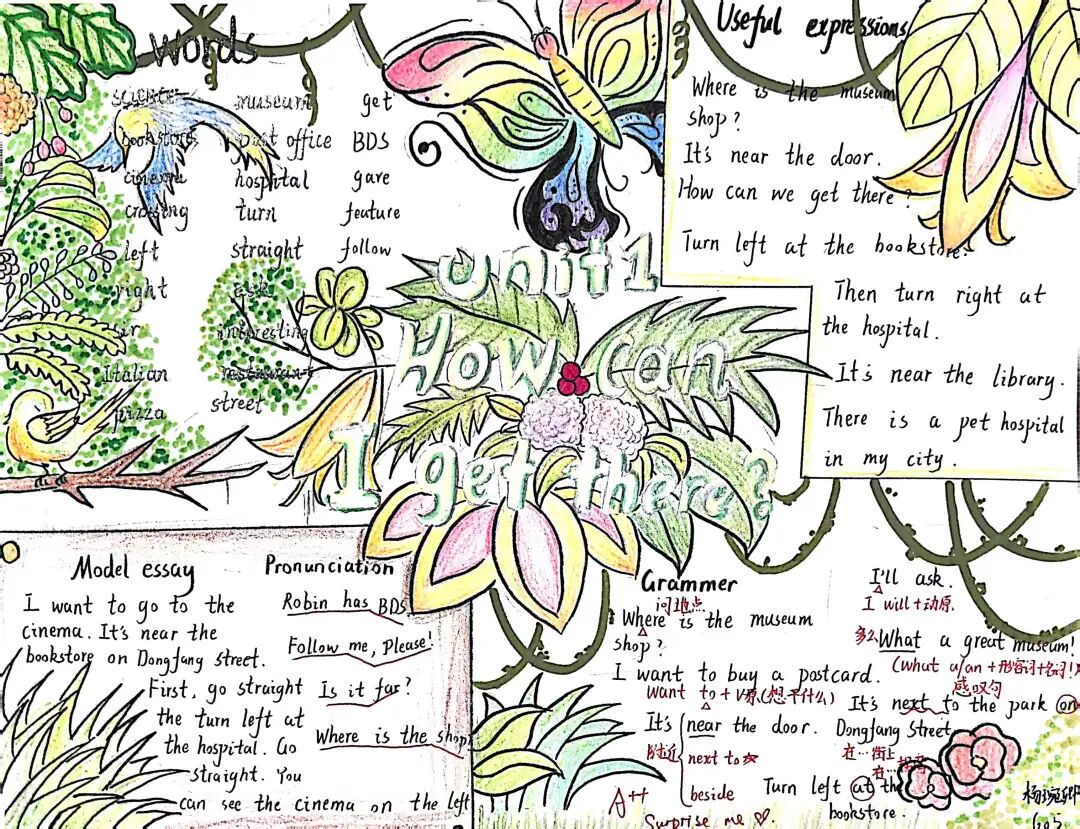 Words
science museum get
bookstore post office BDS
cinema hospital gare
crossing turn feature
left straight follow
right ask
sir interesting
Italian restaurant
pizza street
Useful expressions
Where is the museum
shop?
It's near the door.
How can we get there?
Turn left at the bookstore.
Then turn right at
the hospital.
It's near the library.
There is a pet hospital
in my city.
Unit1
How can
I get there?
Model essay
I want to go to the
cinema. It's near the
bookstore on Dongfang street.
First, go straight
the turn left at
the hospital. Go
straight. You
can see the cinema on the left
Pronunciation
Robin has BDS.
Follow me, Please!
Is it far?
Where is the shop
Grammer
问地点
Where is the museum
shop?
I want to buy a postcard.
want to + V原(想干什么)
It's near the door.
附近 next to
beside
I'll ask.
I will + 动原.
多么 What a great museum!
(what a/an + 形容词+名词!)
感叹句
It's next to the park on
Dongfang Street
在…街上
在…
Turn left at the
bookstore.
A++
Surprise me
杨婉卿
605